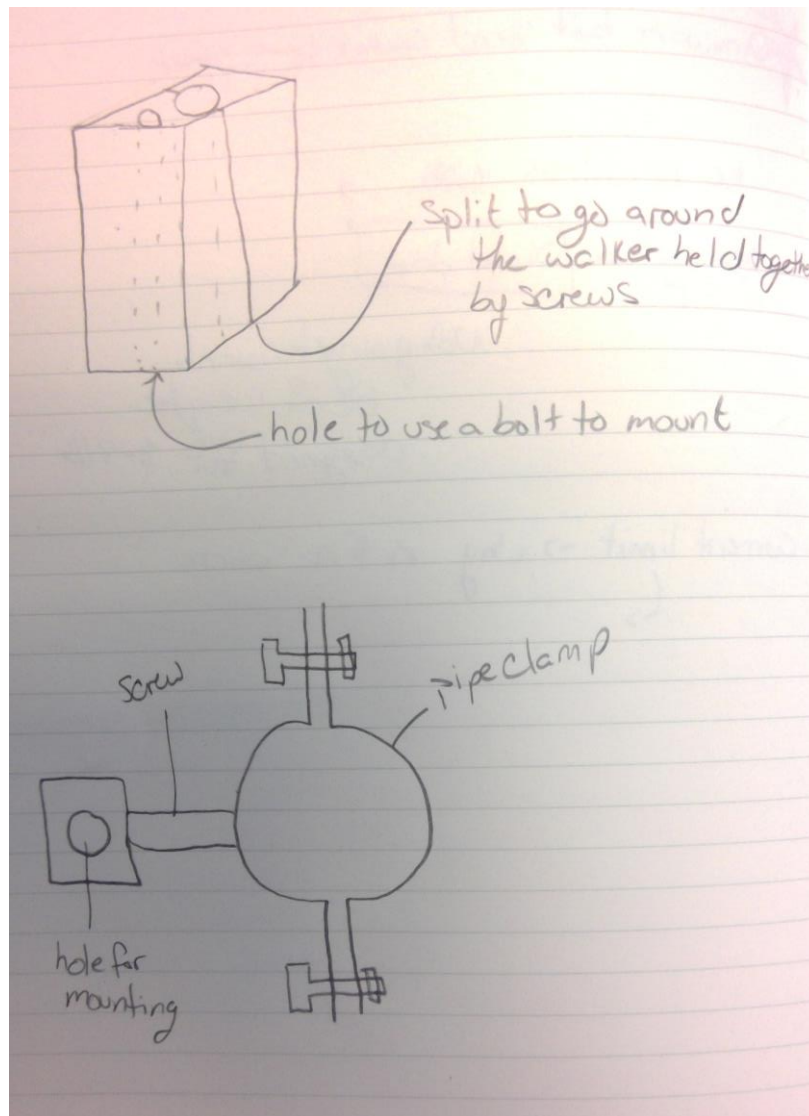 split to go around
the walker held together
by screws
hole to use a bolt to mount
screw
pipe clamp
hole for
mounting